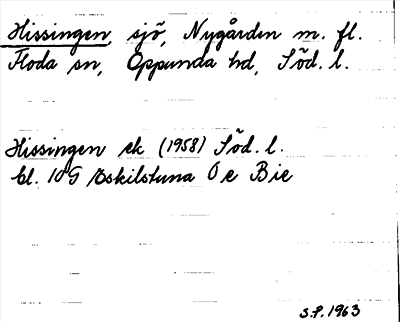 Hissingen, sjö, Nygården m. fl.
Floda sn, Oppunda hd, Söd. l.
Hissingen ek (1958) Söd. l.
bl. 10 G Eskilstuna Ö e Bie
S.P. 1963